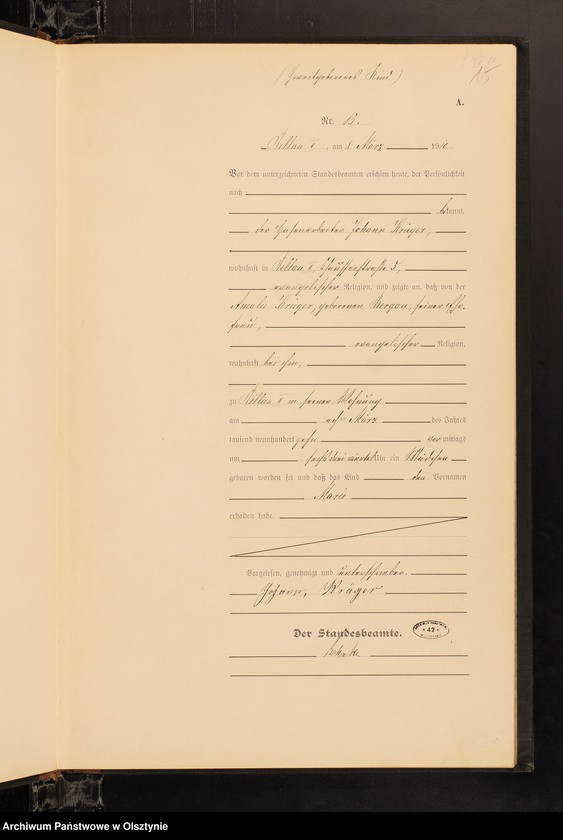 (Zweitgeborenes Kind)
15
A.
Nr. 15.
Pillau I, am 8. März 1910.
Vor dem unterzeichneten Standesbeamten erschien heute, der Persönlichkeit
nach
bekannt,
der Hafenarbeiter Johann Krüger,
wohnhaft in Pillau I, Chausseestraße 5,
evangelischer Religion, und zeigte an, daß von der
Amalie Krüger, geborenen Bergau, seiner Ehe-
frau,
evangelischer Religion,
wohnhaft bei ihm,
zu Pillau I in seiner Wohnung
am März des Jahres
tausend neunhundert zehn vormittags
um Uhr ein Mädchen
geboren worden sei und daß das Kind den Vornamen
Marie
erhalten habe.
Vorgelesen, genehmigt und unterschrieben.
Johann, Krüger
Der Standesbeamte.
47
Archiwum Państwowe w Olsztynie